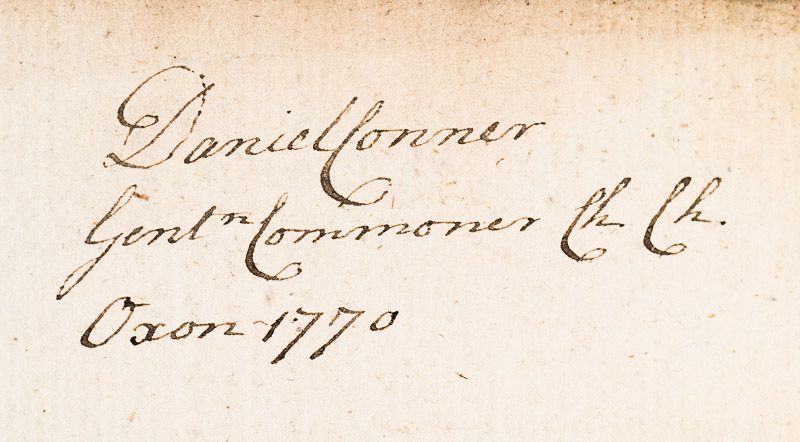 Daniel Conner
Gentn Commoner Ch Ch.
Oxon 1770